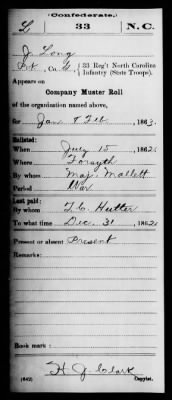 (Confederate.)
L 33 N.C.
J. Long
Pvt, Co. G, 33 Reg't North Carolina
Infantry (State Troops).
Appears on
Company Muster Roll
of the organization named above,
for Jan & Feb, 1863.
Enlisted:
When July 15, 1862
Where Forsyth
By whom Maj. Mallett
Period War
Last paid:
By whom T. C. Hutter
To what time Dec. 31, 1862
Present or absent Present
Remarks:
Book mark:
H. J. Clark
(642) Copyist.